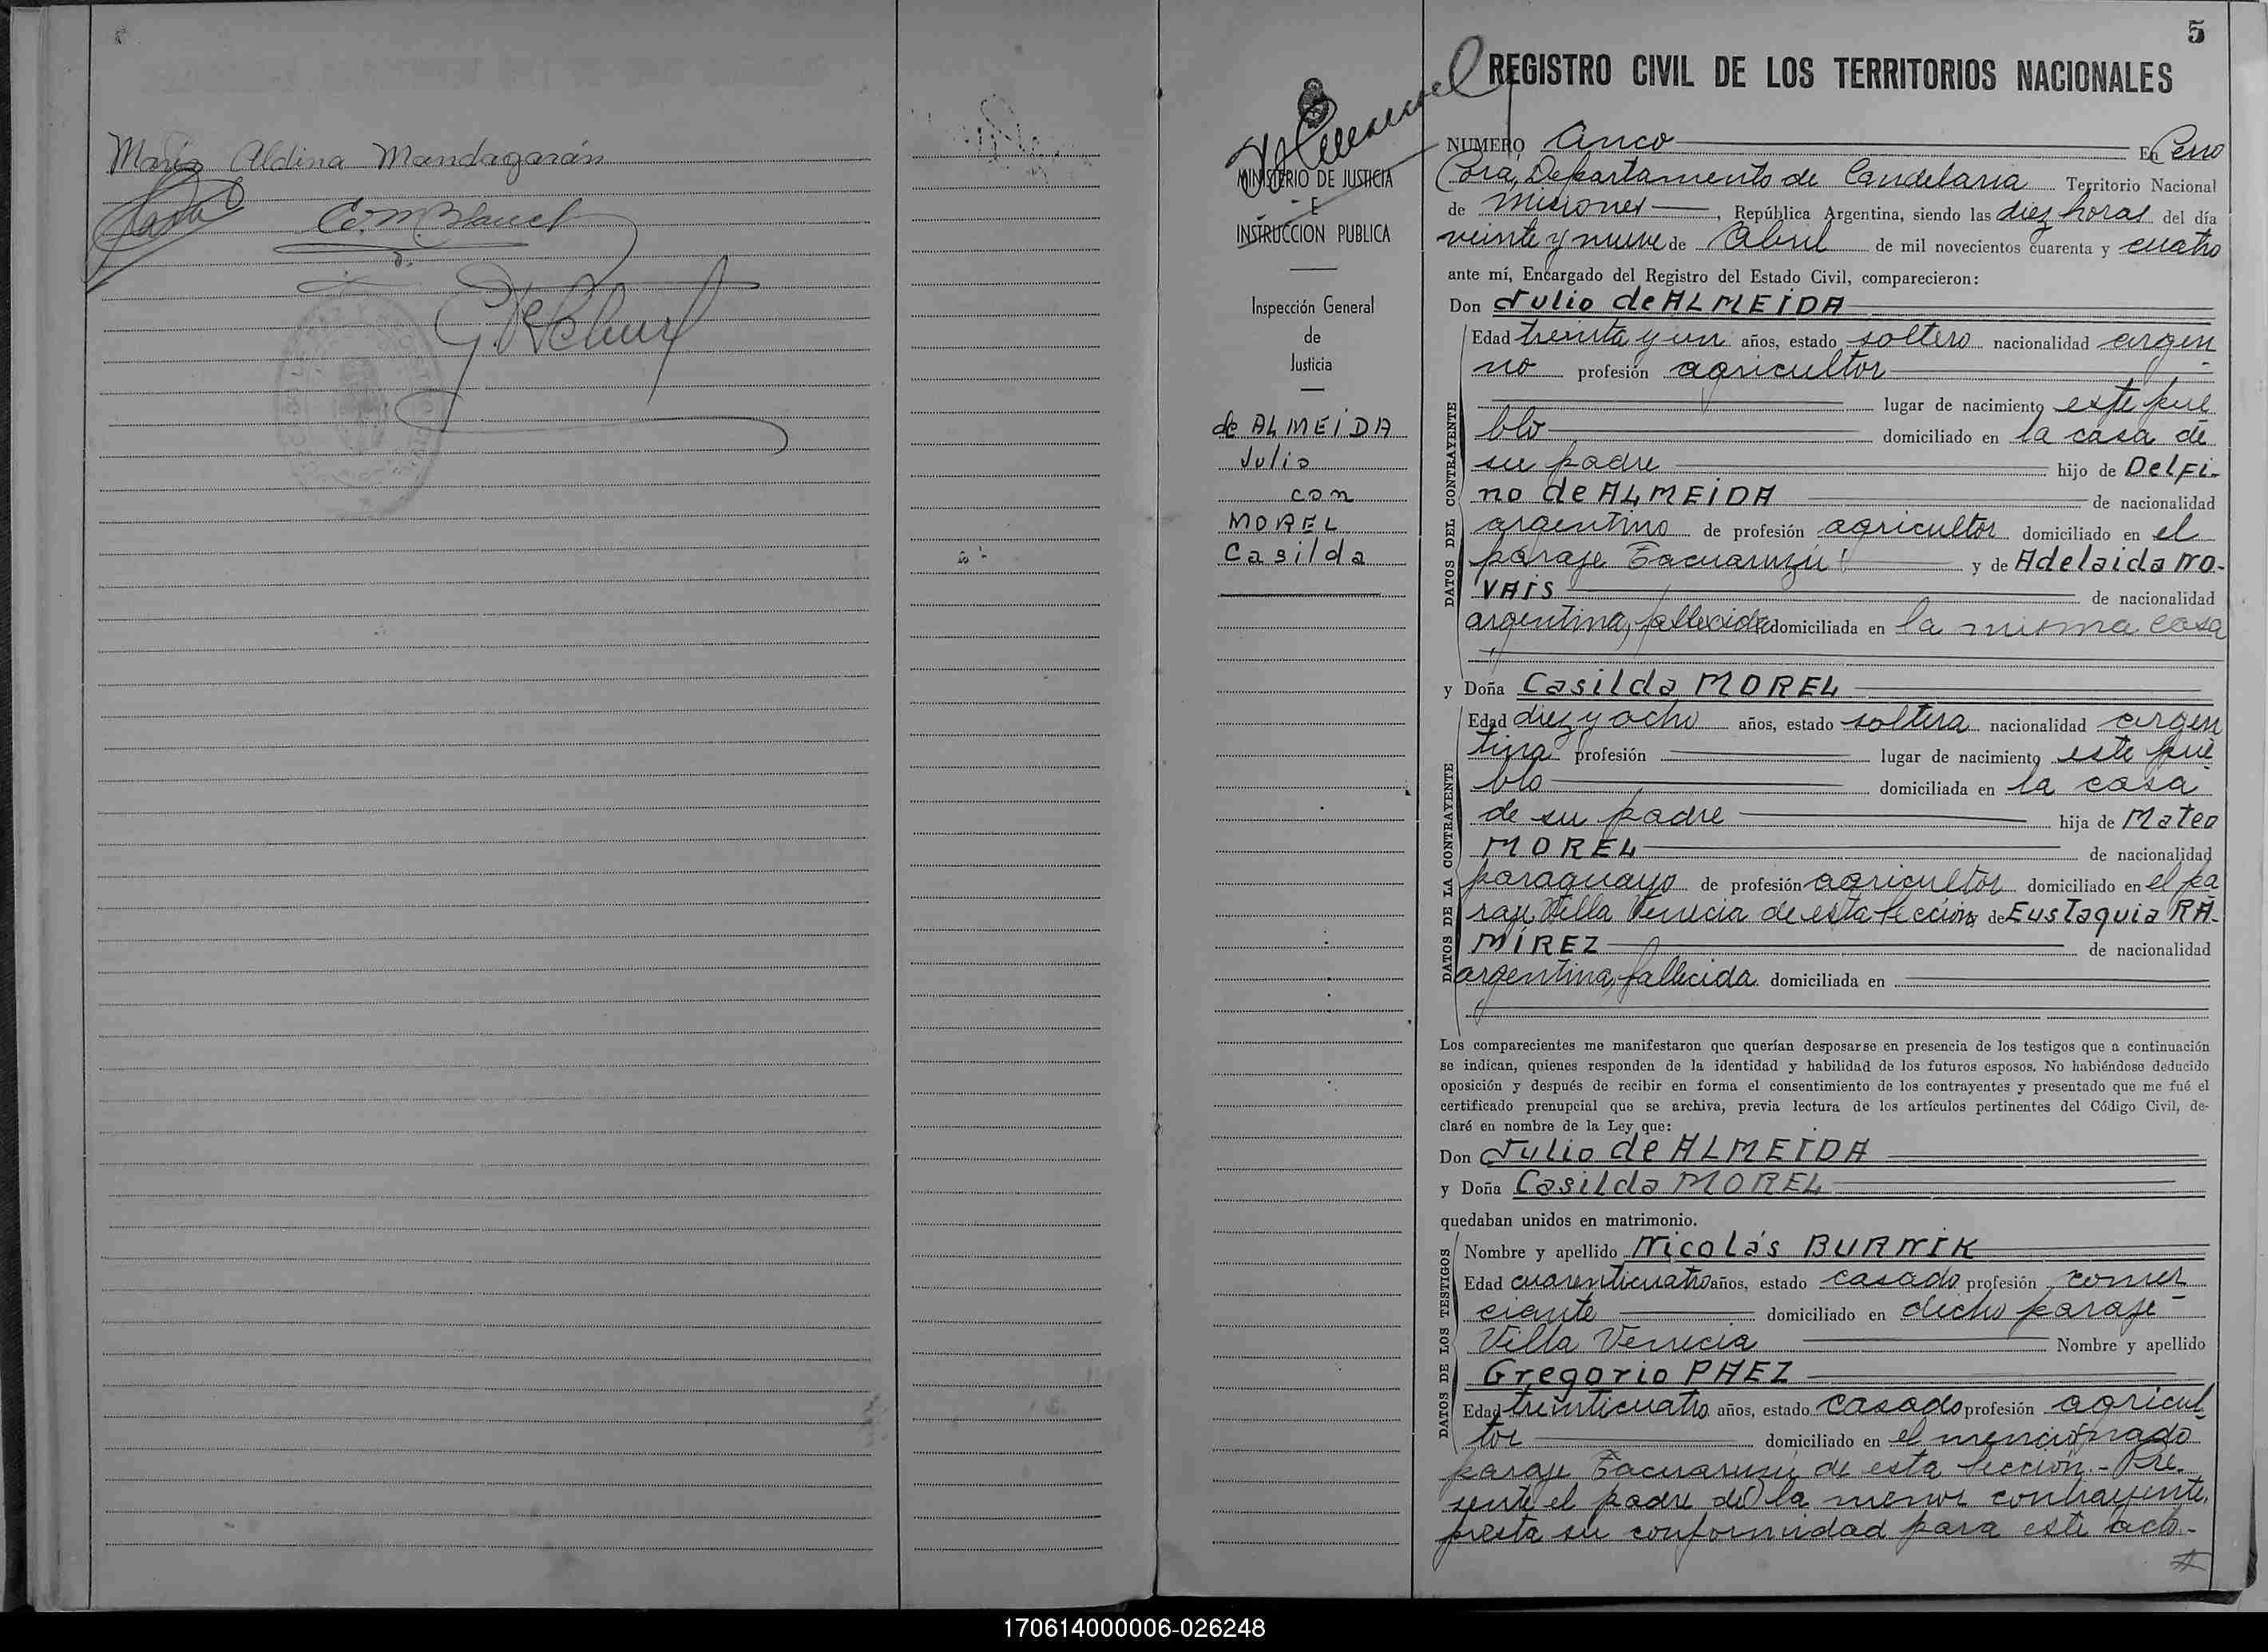 Maria Aldina Mandagarán
C. M. Blanch
5
REGISTRO CIVIL DE LOS TERRITORIOS NACIONALES
MINISTERIO DE JUSTICIA
E
INSTRUCCION PUBLICA
Inspección General
de
Justicia
de ALMEiDA
Julio
con
MOREL
Casilda
NUMERO Cinco En Cerro
Corá, Departamento de Candelaria Territorio Nacional
de Misiones, República Argentina, siendo las diez horas del día
veinte y nueve de Abril de mil novecientos cuarenta y cuatro
ante mí, Encargado del Registro del Estado Civil, comparecieron:
Don Julio de ALMEiDA
DATOS DEL CONTRAYENTE
Edad treinta y un años, estado soltero nacionalidad argen
no profesión agricultor
lugar de nacimiento este pue
blo domiciliado en la casa de
su padre hijo de Delfi-
no de ALMEiDA de nacionalidad
argentino de profesión agricultor domiciliado en el
paraje Tacuaruzú y de Adelaida NO-
VAIS de nacionalidad
argentina, fallecida domiciliada en la misma casa
y Doña Casilda MOREL
DATOS DE LA CONTRAYENTE
Edad diez y ocho años, estado soltera nacionalidad argen
tina profesión lugar de nacimiento este pue
blo domiciliada en la casa
de su padre hija de Mateo
MOREL de nacionalidad
paraguayo de profesión agricultor domiciliado en el pa
raje Villa Venecia de esta sección y de Eustaquia RA-
MÍREZ de nacionalidad
argentina, fallecida domiciliada en
Los comparecientes me manifestaron que querían desposarse en presencia de los testigos que a continuación
se indican, quienes responden de la identidad y habilidad de los futuros esposos. No habiéndose deducido
oposición y después de recibir en forma el consentimiento de los contrayentes y presentado que me fué el
certificado prenupcial que se archiva, previa lectura de los artículos pertinentes del Código Civil, de-
claré en nombre de la Ley que:
Don Julio de ALMEIDA
y Doña Casilda MOREL
quedaban unidos en matrimonio.
DATOS DE LOS TESTIGOS
Nombre y apellido Nicolás BURNIK
Edad cuarenticuatro años, estado casado profesión comer
ciante domiciliado en dicho paraje
Villa Venecia Nombre y apellido
Gregorio PAEZ
Edad treinticuatro años, estado casado profesión agricul-
tor domiciliado en el mencionado
paraje Tacuaruzú de esta sección.- Pre-
sente el padre de la menor contrayente,
presta su conformidad para este acto.-
170614000006-026248